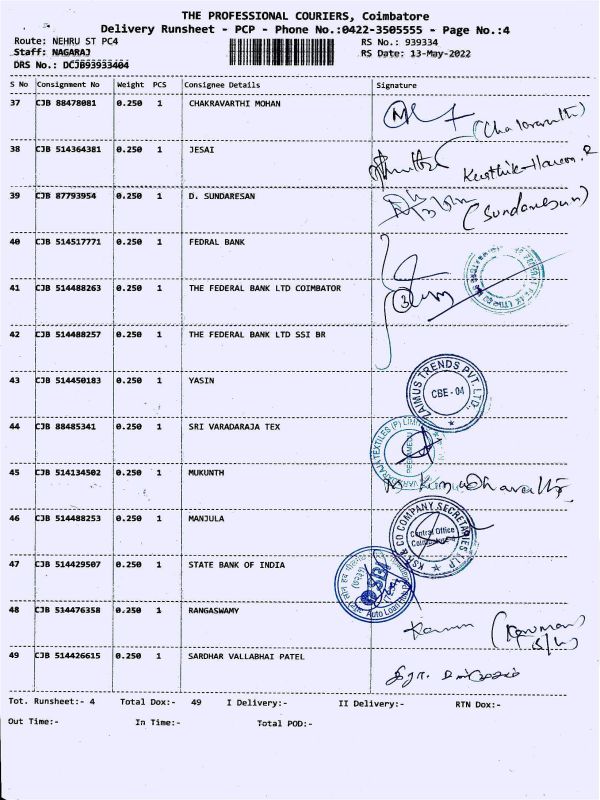 THE PROFESSIONAL COURIERS, Coimbatore
Delivery Runsheet - PCP - Phone No.:0422-3505555 - Page No.:4
Route: NEHRU ST PC4 RS No.: 939334
Staff: NAGARAJ RS Date: 13-May-2022
DRS No.: DCJB93933404
S No Consignment No Weight PCS Consignee Details Signature
37 CJB 88478081 0.250 1 CHAKRAVARTHI MOHAN
38 CJB 514364381 0.250 1 JESAI
39 CJB 87793954 0.250 1 D. SUNDARESAN (Sundaresan)
40 CJB 514517771 0.250 1 FEDRAL BANK
41 CJB 514488263 0.250 1 THE FEDERAL BANK LTD COIMBATOR 3
42 CJB 514488257 0.250 1 THE FEDERAL BANK LTD SSI BR
43 CJB 514450183 0.250 1 YASIN ZAIMUS TRENDS PVT. LTD. CBE - 04
44 CJB 88485341 0.250 1 SRI VARADARAJA TEX
45 CJB 514134502 0.250 1 MUKUNTH
46 CJB 514488253 0.250 1 MANJULA KSR & CO COMPANY SECRETARIES LLP Central Office
47 CJB 514429507 0.250 1 STATE BANK OF INDIA SBI
48 CJB 514476358 0.250 1 RANGASWAMY
49 CJB 514426615 0.250 1 SARDHAR VALLABHAI PATEL
Tot. Runsheet:- 4 Total Dox:- 49 I Delivery:- II Delivery:- RTN Dox:-
Out Time:- In Time:- Total POD:-